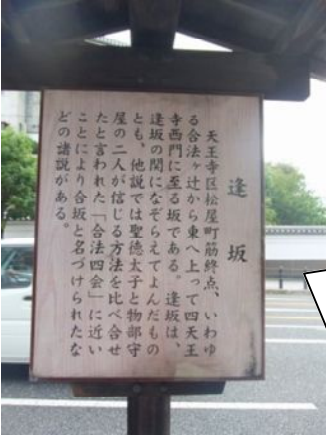 逢坂
天王寺区松屋町筋終点、いわゆ
る合法ヶ辻から東へ上って四天王
寺西門に至る坂である。逢坂は、
逢坂の関になぞらえてよんだもの
とも、他説では聖徳太子と物部守
屋の二人が信じる方法を比べ合せ
たと言われた「合法四会」に近い
ことにより合坂と名づけられたな
どの諸説がある。